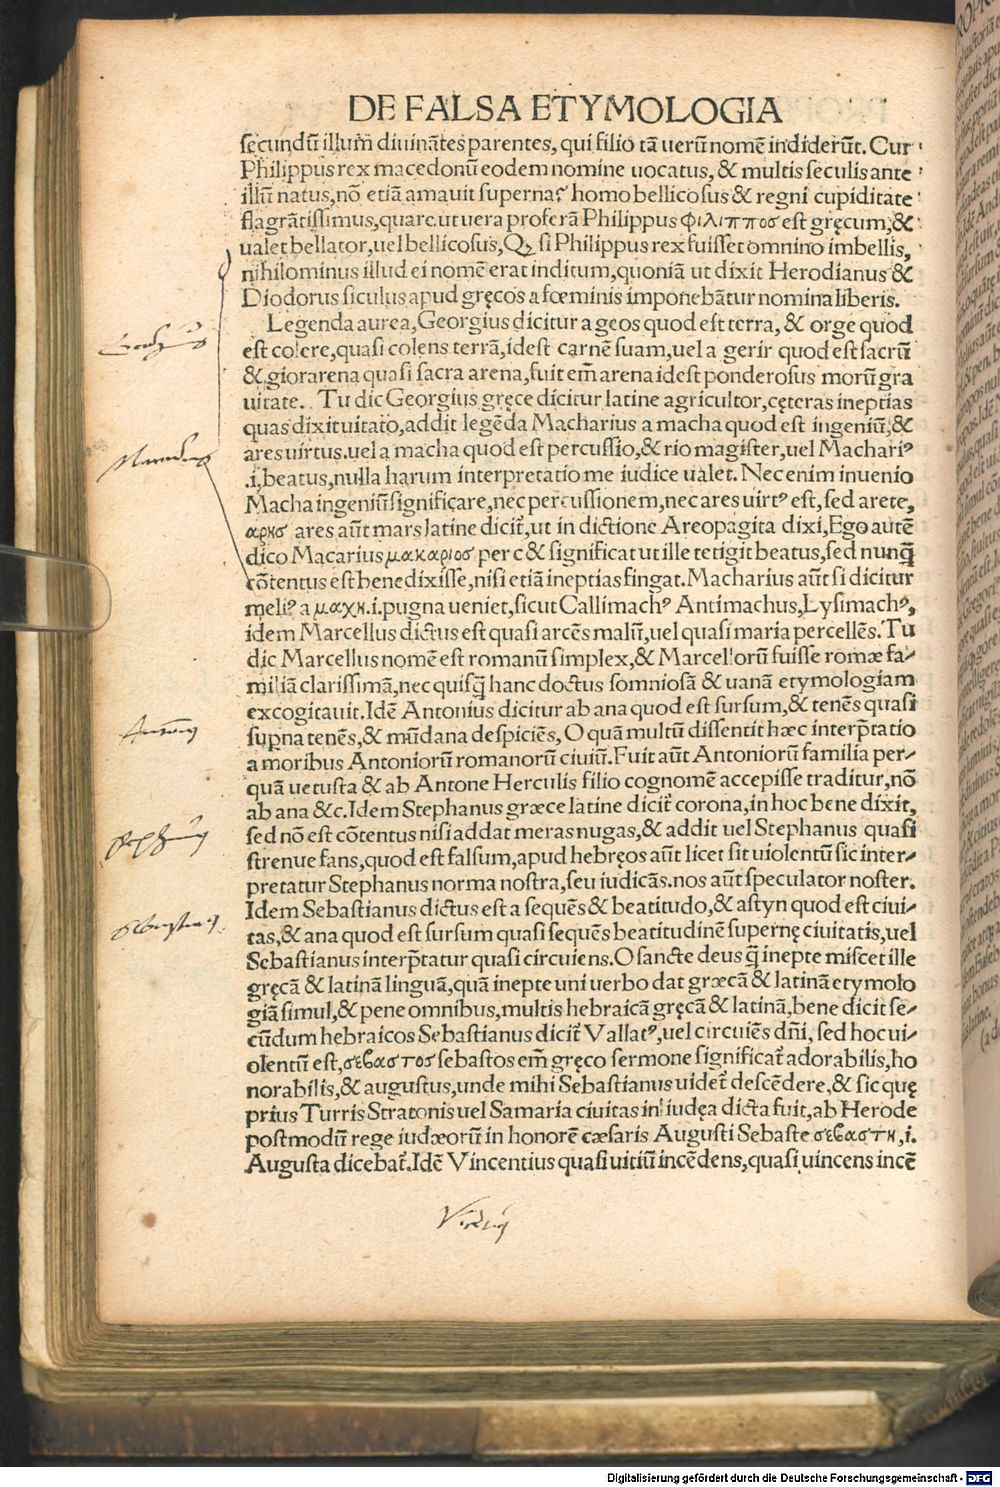 DE FALSA ETYMOLOGIA
secundū illum diuinātes parentes, qui filio tā uerū nomē indiderūt. Cur
Philippus rex macedonū eodem nomine uocatus, & multis seculis ante
illū natus, nō etiā amauit superna? homo bellicosus & regni cupiditate
flagrātissimus, quare ut uera proferā Philippus φιλιππος est gręcum, &
ualet bellator, uel bellicosus, Qꝫ si Philippus rex fuisset omnino imbellis,
nihilominus illud ei nomē erat inditum, quoniā ut dixit Herodianus &
Diodorus siculus apud gręcos a fœminis imponebātur nomina liberis.
Legenda aurea, Georgius dicitur a geos quod est terra, & orge quod
est colere, quasi colens terrā, idest carnē suam, uel a gerir quod est sacrū
& gior arena quasi sacra arena, fuit em̄ arena idest ponderosus morū gra
uitate. Tu dic Georgius gręce dicitur latine agricultor, cęteras ineptias
quas dixit uitato, addit legēda Macharius a macha quod est ingeniū, &
ares uirtus. uel a macha quod est percussio, & rio magister, uel Machariꝰ
.i, beatus, nulla harum interpretatio me iudice ualet. Nec enim inuenio
Macha ingeniū significare, nec percussionem, nec ares uirtꝰ est, sed arete,
αρης ares aūt mars latine dicit̄, ut in dictione Areopagita dixi, Ego autē
dico Macarius μακαριος per c & significat ut ille tetigit beatus, sed nunq̄
cōtentus est bene dixisse, nisi etiā ineptias fingat. Macharius aūt si dicitur
meliꝰ a μαχη .i. pugna ueniet, sicut Callimachꝰ Antimachus, Lysimachꝰ,
idem Marcellus dictus est quasi arcēs malū, uel quasi maria percellēs. Tu
dic Marcellus nomē est romanū simplex, & Marcellorū fuisse romæ fa-
miliā clarissimā, nec quisq̄ hanc doctus somniosā & uanā etymologiam
excogitauit. Idē Antonius dicitur ab ana quod est sursum, & tenēs quasi
suꝑna tenēs, & mūdana despiciēs, O quā multū dissentit hæc interp̄tatio
a moribus Antoniorū romanorū ciuiū. Fuit aūt Antoniorū familia per-
quā uetusta & ab Antone Herculis filio cognomē accepisse traditur, nō
ab ana &c. Idem Stephanus græce latine dicit̄ corona, in hoc bene dixit,
sed nō est cōtentus nisi addat meras nugas, & addit uel Stephanus quasi
strenue fans, quod est falsum, apud hebręos aūt licet sit uiolentū sic inter-
pretatur Stephanus norma nostra, seu iudicās. nos aūt speculator noster.
Idem Sebastianus dictus est a sequēs & beatitudo, & astyn quod est ciui-
tas, & ana quod est sursum quasi sequēs beatitudinē supernę ciuitatis, uel
Sebastianus interp̄tatur quasi circuiens. O sancte deus q̄ inepte miscet ille
gręcā & latinā linguā, quā inepte uni uerbo dat græcā & latinā etymolo
giā simul, & pene omnibus, multis hebraicā gręcā & latinā, bene dicit se-
cūdum hebraicos Sebastianus dicit̄ Vallatꝰ, uel circuiēs dn̄i, sed hoc ui-
olentū est, σεβαστος sebastos em̄ gręco sermone significat̄ adorabilis, ho
norabilis, & augustus, unde mihi Sebastianus uidet̄ descēdere, & sic quę
prius Turris Stratonis uel Samaria ciuitas in iudęa dicta fuit, ab Herode
postmodū rege iudæorū in honorē cæsaris Augusti Sebaste σεβαστη, i.
Augusta dicebat̄. Idē Vincentius quasi uitiū incēdens, quasi uincens incē
Digitalisierung gefördert durch die Deutsche Forschungsgemeinschaft - DFG